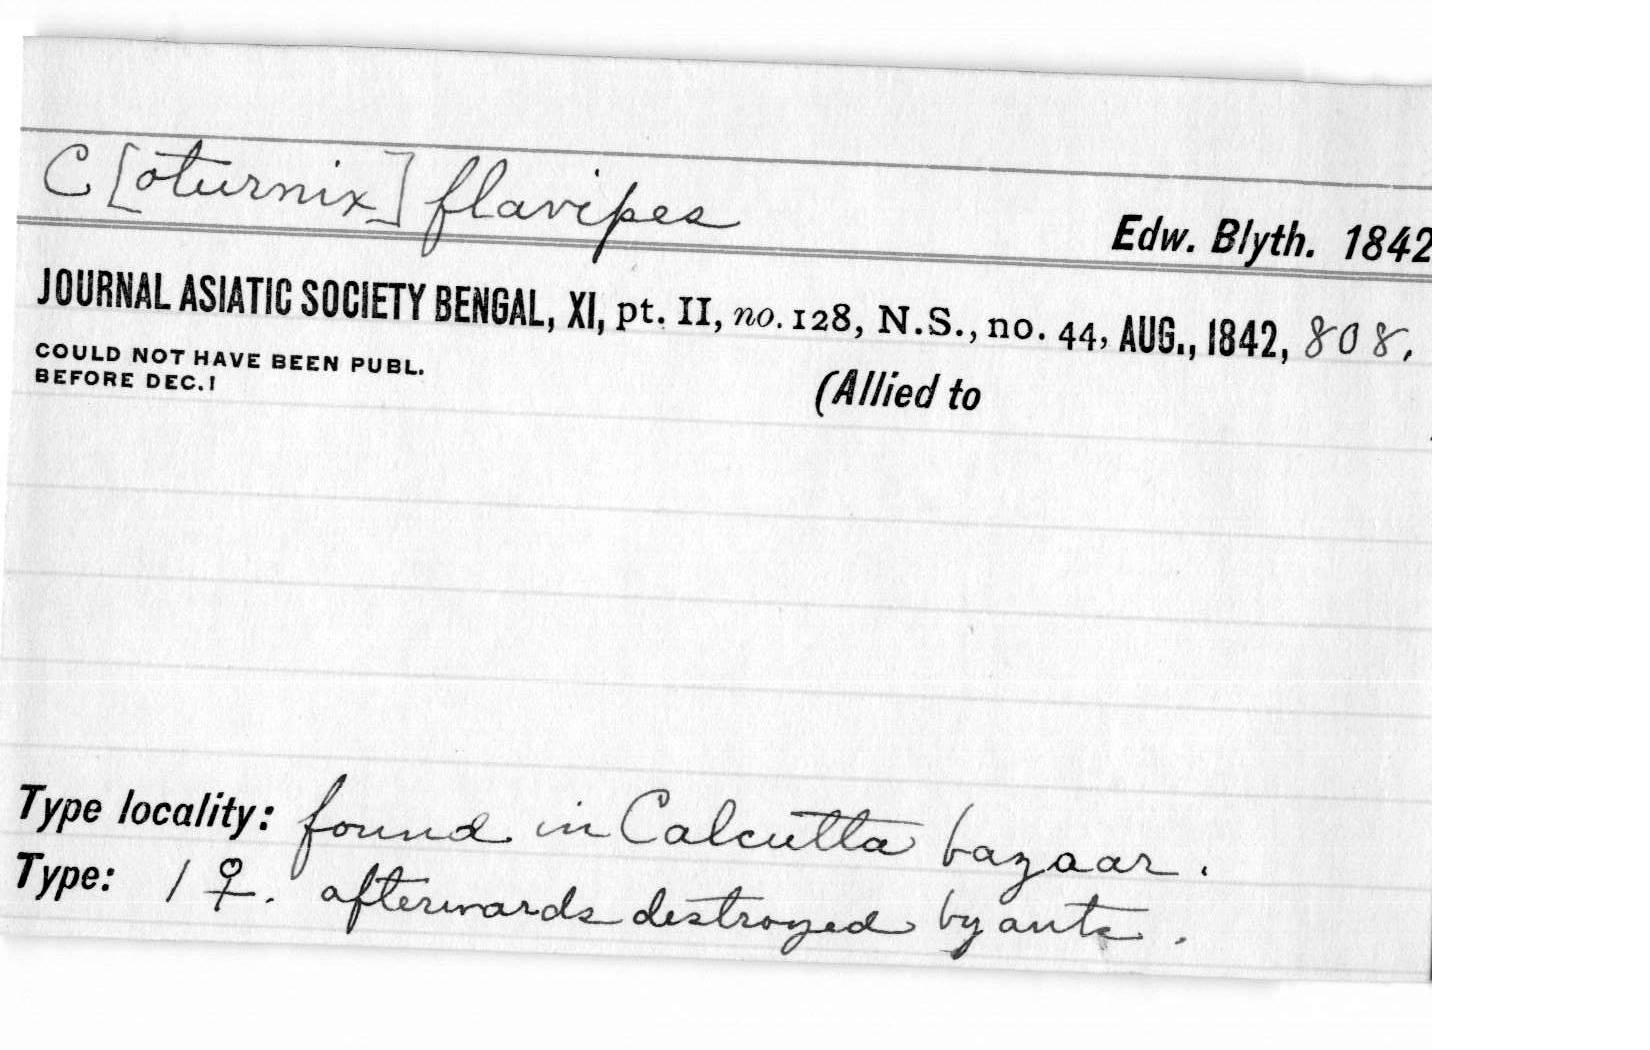 C[oturnix] flavipes
Edw. Blyth. 1842
JOURNAL ASIATIC SOCIETY BENGAL, XI, pt. II, no. 128, N.S., no. 44, AUG., 1842, 808.
COULD NOT HAVE BEEN PUBL.
BEFORE DEC. 1
(Allied to
Type locality: found in Calcutta bazaar.
Type: 1 ♀. afterwards destroyed by ants.